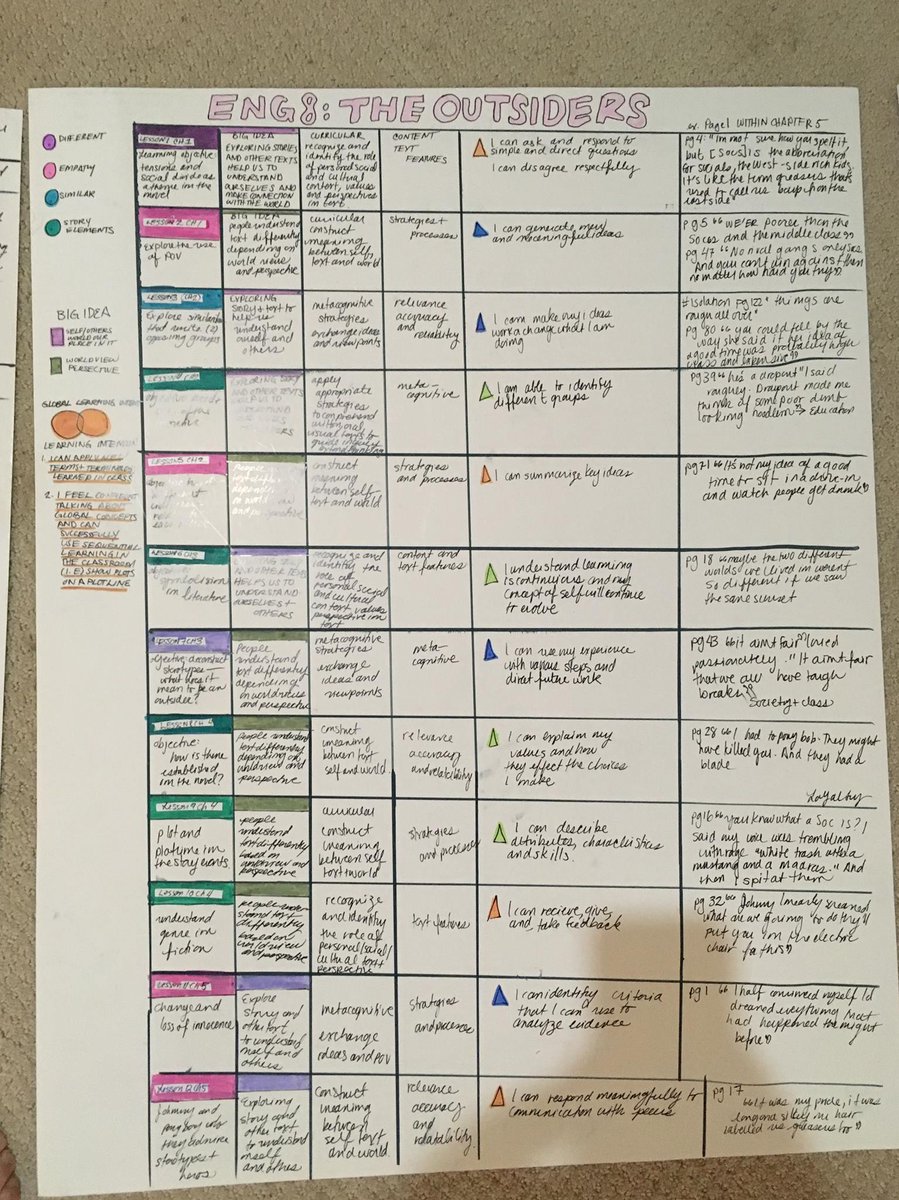 ENG 8: THE OUTSIDERS
DIFFERENT
EMPATHY
SIMILAR
STORY
ELEMENTS
BIG IDEA
SELF/OTHERS
WORLD OUR
PLACE IN IT
WORLD VIEW
GLOBAL LEARNING
LEARNING INTENTION
1. I CAN APPLY
TERMS +
LEARNED IN CLASS
2. I FEEL
TALKING ABOUT
GLOBAL CONCEPTS
AND CAN
SUCCESSFULLY
USE SEQUENTIAL
LEARNING IN
THE CLASSROOM
(I.E) SHOW PLOTS
ON A PLOTLINE
LESSON 1 CH 1
tensions and
social divide as
a theme in the
novel
BIG IDEA
EXPLORING STORIES
AND OTHER TEXTS
HELPS US TO
UNDERSTAND
OURSELVES AND
MORE CONNECTION
WITH THE WORLD
CURRICULAR
recognize and
identify the role
of personal social
and cultural
context, values
and perspectives
in text
CONTENT
TEXT
FEATURES
I can ask and respond to
simple and direct questions
I can disagree respectfully
Page 1 WITHIN CHAPTER 5
pg 4: "I'm not sure how you spell it
but [socs] is the abbreviation
for socials, the west-side rich kids
it's like the term greasers that's
used to call us boys from the
east side"
LESSON 2 CH 1
Explore the use
of POV
BIG IDEA
people understand
text differently
depending on
world views
and perspective
curricular
construct
meaning
between self,
text and world
strategies +
processes
I can generate new
and meaningful ideas
pg 5 "WE'ER POORER than the
socs and the middle class"
pg 47
Explore similarities
that unite (2)
opposing groups
EXPLORING
story + text to
help us
understand
ourself and
others
metacognitive
strategies
exchange ideas
and viewpoints
relevance
accuracy
and
reliability
I can make my ideas
work or change what I am
doing
#Isolation pg 122 "things are
rough all over"
pg 80 "you could tell by the
way she said it her idea of
a good time was probably high
class and expensive"
EXPLORING STORY
AND OTHER TEXTS
HELPS US TO
UNDERSTAND
OURSELVES
OTHERS
apply
appropriate
strategies
to comprehend
meta-
cognitive
I am able to identify
different groups
pg 39 "he's a dropout" I said
roughly. Dropout made me
think of some poor dumb
looking hoodlum" → Education
LESSON 5 CH 2
construct
meaning
between self
text and world
strategies
and processes
I can summarize key ideas
pg 21 "it's not my idea of a good
time to sit in a drive-in
and watch people get drunk"
LESSON 6 CH 3
symbolism
in literature
AND OTHER TEXTS
HELPS US TO
UNDERSTAND
OURSELVES +
OTHERS
recognize and
identify the
role of
personal social
and cultural
context values
perspective in
text
content and
text features
I understand learning
is continuous and my
concept of self will continue
to evolve
pg 18 "maybe the two different
worlds we lived in weren't
so different if we saw
the same sunset
LESSON 7 CH 3
objective: deconstruct
stereotypes—
what does it
mean to be an
outsider?
People
understand
text differently
depending
on worldviews
and perspective
metacognitive
strategies
exchange
ideas and
viewpoints
meta-
cognitive
I can use my experience
with various steps and
direct future work
pg 43 "it ain't fair" I cried
passionately. "It ain't fair
that we all have tough
breaks"
Society + class
LESSON 8 CH 4
objective:
how is theme
established
in the novel?
People understand
text differently
depending on
worldview and
perspective
construct
meaning
between text
self and world.
relevance
accuracy
and relatability
I can explain my
values and how
they effect the choices
I make
pg 28 "I had to bob. They might
have killed you. And they had a
blade
Loyalty
Lesson 9 Ch 4
plot and
plotline in
the story events
people
understand
text differently
based on
worldview and
perspective
curricular
construct
meaning
between self
text + world
strategies
and processes
I can describe
attributes, characteristics
and skills.
pg 16 "you know what a Soc is?"
said my voice was trembling
with rage "white trash with a
mustang and a madras." And
then I spit at them
Lesson 10 Ch 4
understand
genre in
fiction
people under-
stand text
differently
based on
world view
and perspective
recognize
and identify
the role of
personal/social/
cultural text +
perspective
text features
I can recieve, give,
and take feedback
pg 32 "Johnny I nearly screamed
what are we gunna do they
put you in the electric
chair for this"
Lesson 11 Ch 5
change and
loss of innocence
Explore
story and
other text
to understand
self and
others
metacognitive
exchange
ideas and POV
strategies
and process
I can identify criteria
that I can use to
analyze evidence
pg 1 "I half convinced myself I'd
dreamed everything that
had happened the night
before"
Lesson 12 Ch 5
Johnny and
pony boy who
they admire
stereotypes +
heros
Exploring
story and
other text
to understand
self
and others
construct
meaning
between
self text
and world.
relevance
accuracy
and
relatability.
I can respond meaningfully to
communication with peers
pg 17
"It was my pride, it was
long and silky our hair
labelled us greasers too"